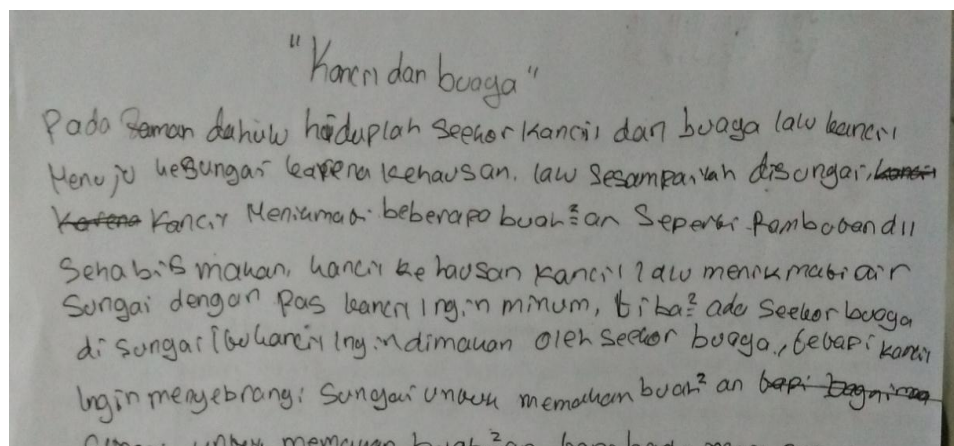 "Kancil dan buaya"
Pada Seman dahulu hiduplah Seekor Kancil dan buaya lalu kancil
Menuju keSungai karena kehausan. lalu Sesampainah disungai,
Kancil Menikmati beberapa buah²an Seperti Rambutandll
Sehabis makan, kancil kehausan kancil lalu menikmati air
Sungai dengan Pas kancil Ingin minum, tiba² ada Seekor buaya
di sungai Itu kancil Ingindimakan Oleh seekor buaya, tetapi kancil
Ingin menyebrangi Sungai untuk memakan buah²an
untuk memakan buah²an